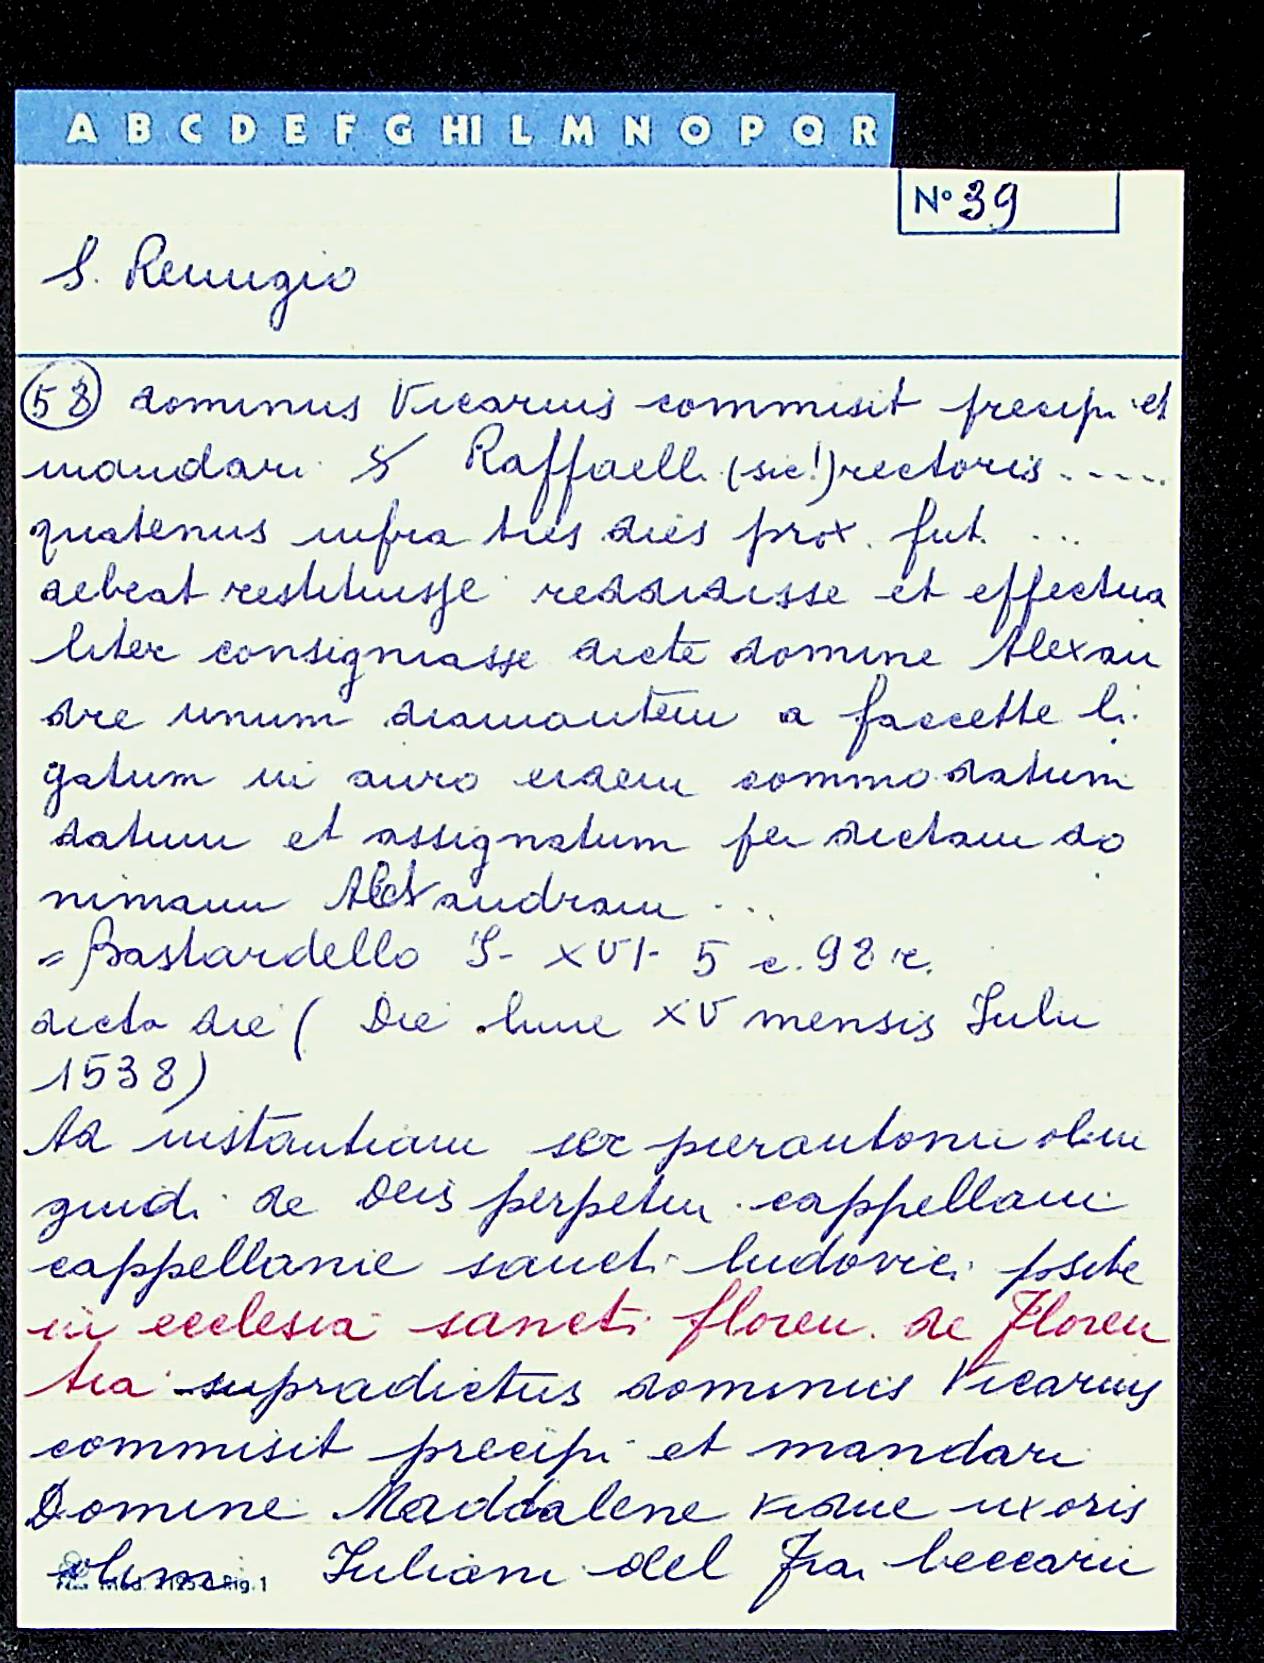 A B C D E F G HI L M N O P Q R
N° 39
S. Remigio
58 dominus Vicarius commisit precipi et
mandari S Raffaelli (sic!) rectoris .....
quatenus infra tres dies prox. fut. ...
debeat restituisse reddidisse et effectua
liter consigniasse dicte domine Alexan
dre unum diamantem a faccette li
gatum in auro eidem commodatum
datum et assignatum per dictam do
nimam Alexandram ...
= Bastardello S- XVI- 5 c. 98 r.
dicto die ( Die lune XV mensis Iulii
1538)
Ad instantiam ser pierantonii olim
guidi de Deis perpetui cappellani
cappellanie sancti ludovici posite
in ecclesia sancti floren. de Floren
tia supradictus dominus Vicarius
commisit precipi et mandari
Domine Maddalene vidue uxoris
olim Iuliani del Fra beccarii
Rig. 1